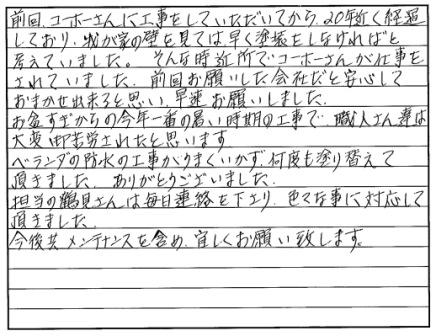 前回、コーホーさんに工事をしていただいてから、20年近く経過
しており、我が家の壁を見ては、早く塗装をしなければと
考えていました。そんな時近所でコーホーさんが仕事を
されていました。前回お願いした会社だと安心して
おまかせ出来ると思い、早速お願いしました。
お盆すぎからの今年一番の暑い時期の工事で、職人さん達は
大変御苦労されたと思います
ベランダの防水の工事がうまくいかず、何度も塗り替えて
頂きました。ありがとうございました。
担当の鶴見さんは毎日連絡を下さり、色々な事に対応して
頂きました。
今後共メンテナンスを含め、宜しくお願い致します。